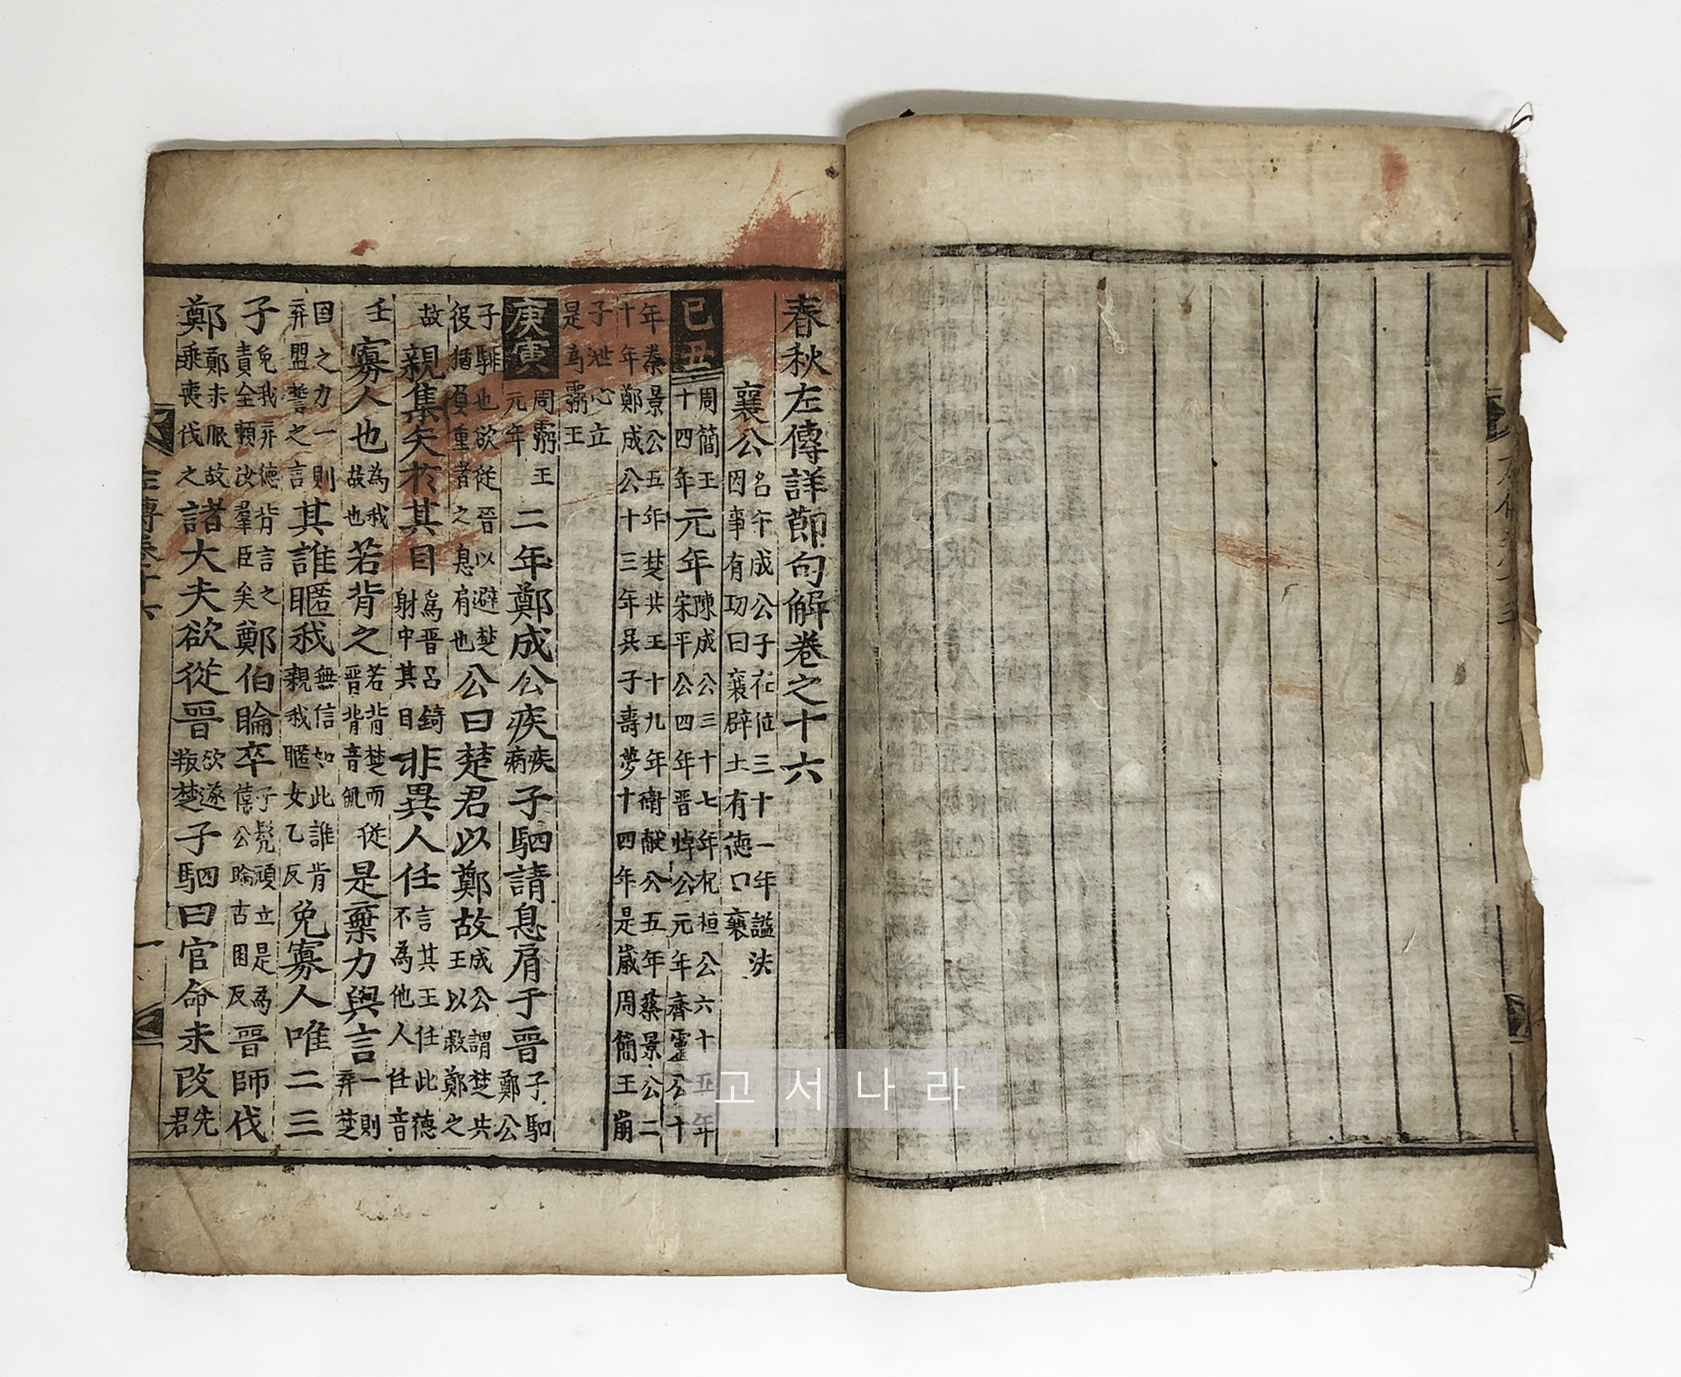 春秋左傳詳節句解卷之十六
襄公名午成公子在位三十一年謚法因事有功曰襄辟土有德曰襄
己丑周簡王十四年元年陳成公三十七年杞桓公六十五年宋平公四年晉悼公元年齊靈公十
年秦景公五年楚共王十九年衛献公五年蔡景公二十年鄭成公十三年吳子壽夢十四年是歲周簡王崩
子泄心立是為靈王
庚寅周靈王元年二年鄭成公疾疾病子駟請息肩于晉子駟鄭公
子騑也欲從晉以避楚役猶負重者之息肩也公曰楚君以鄭故成公謂楚共王以救鄭之
故親集矢於其目為晉呂錡射中其目非異人任言其王任此德不為他人任音
壬寡人也為我故也若背之若背楚而從晉背音佩是棄力與言一則弃楚
因之力一則弃盟誓之言其誰暱我無信如此誰肯親我暱女乙反免寡人唯二三
子免我弃德背言之責全賴汝羣臣矣鄭伯睔卒子髡頑立是為僖公睔古困反晉師伐
鄭鄭未服故乘喪伐之諸大夫欲從晉欲遂叛楚子駟曰官命未改先君
左傳卷十六
一
고서나라